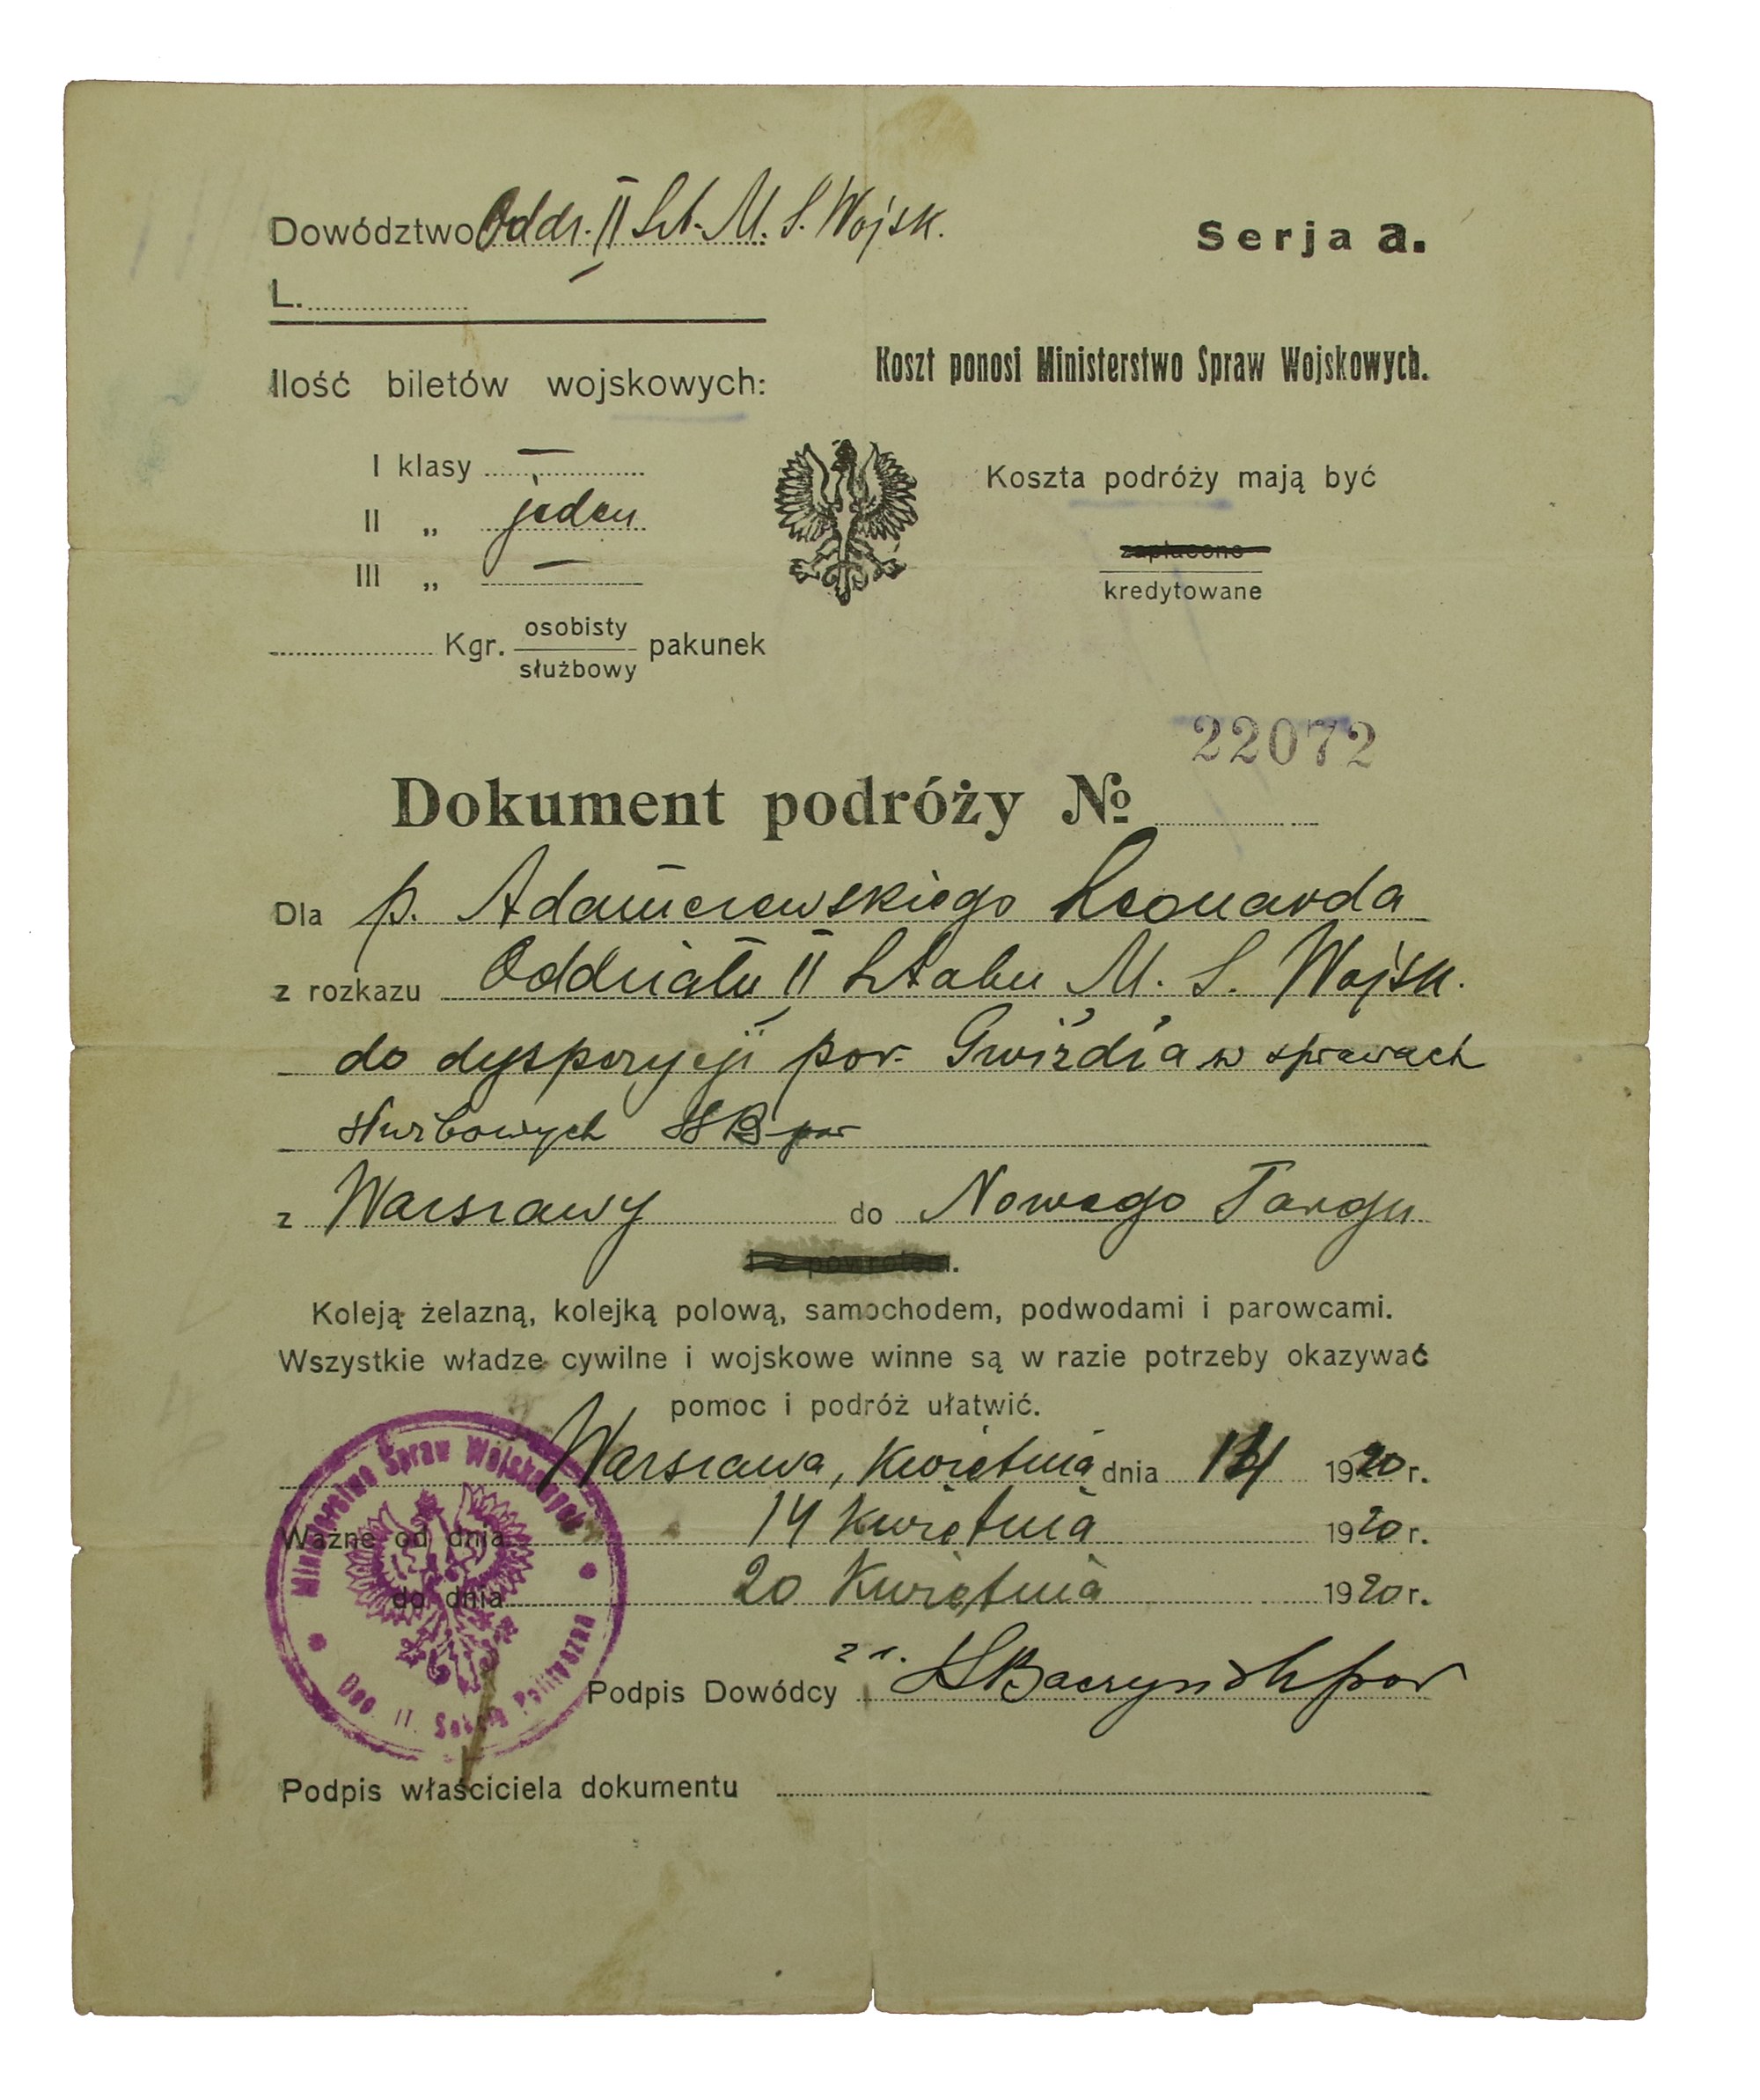 Dowództwo Oddz. II Szt. M. S. Wojsk.
Serja a.
L.
Koszt ponosi Ministerstwo Spraw Wojskowych.
Ilość biletów wojskowych:
I klasy —
II „ jeden
III „ —
Koszta podróży mają być
zapłacone
kredytowane
Kgr. osobisty
służbowy pakunek
22072
Dokument podróży №
Dla p. Adamczewskiego Leonarda
z rozkazu Oddziału II Sztabu M. S. Wojsk.
do dyspozycji por. Gwiżdża w sprawach
służbowych SB por
z Warszawy do Nowego Targu
i z powrotem.
Koleją żelazną, kolejką polową, samochodem, podwodami i parowcami.
Wszystkie władze cywilne i wojskowe winne są w razie potrzeby okazywać
pomoc i podróż ułatwić.
Warszawa, Kwietnia dnia 14 1920 r.
Ważne od dnia 14 Kwietnia 1920 r.
do dnia 20 Kwietnia 1920 r.
Podpis Dowódcy SBaczyński por
Podpis właściciela dokumentu
Ministerstwo Spraw Wojskowych
Dep. II. Sekcja Polityczna